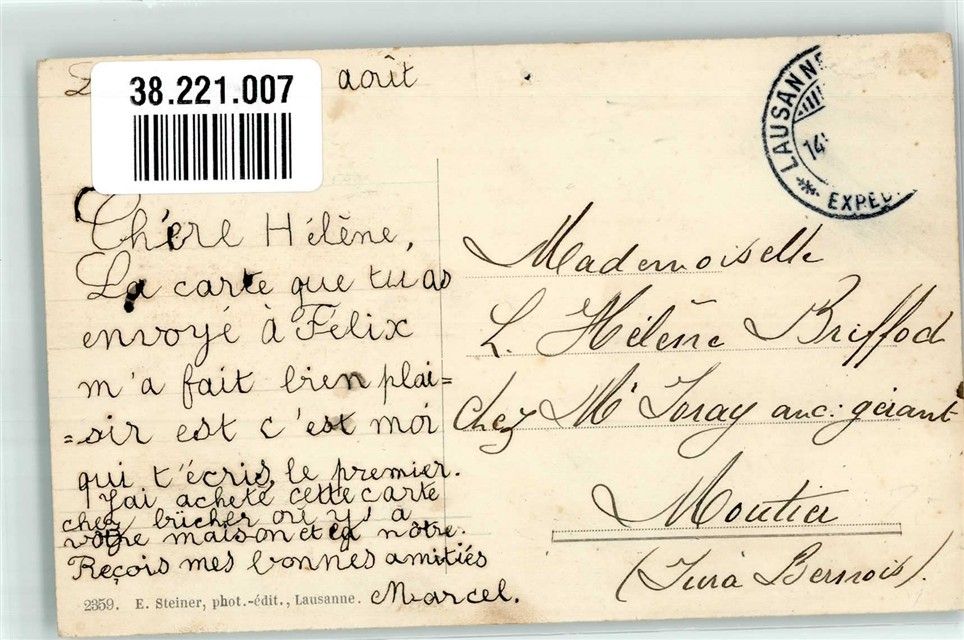 38.221.007
août
Chère Hélène,
La carte que tu as
envoyé à Félix
m'a fait bien plai=
=sir est c'est moi
qui t'écris le premier.
J'ai acheté cette carte
chez
votre maison et la nôtre.
Reçois mes bonnes amitiés
Marcel.
2359. E. Steiner, phot.-édit., Lausanne.
LAUSANNE
14
EXPED
Mademoiselle
L. Hélène Briffod
chez Mr Joray anc: gérant
Moutier
(Jura Bernois).